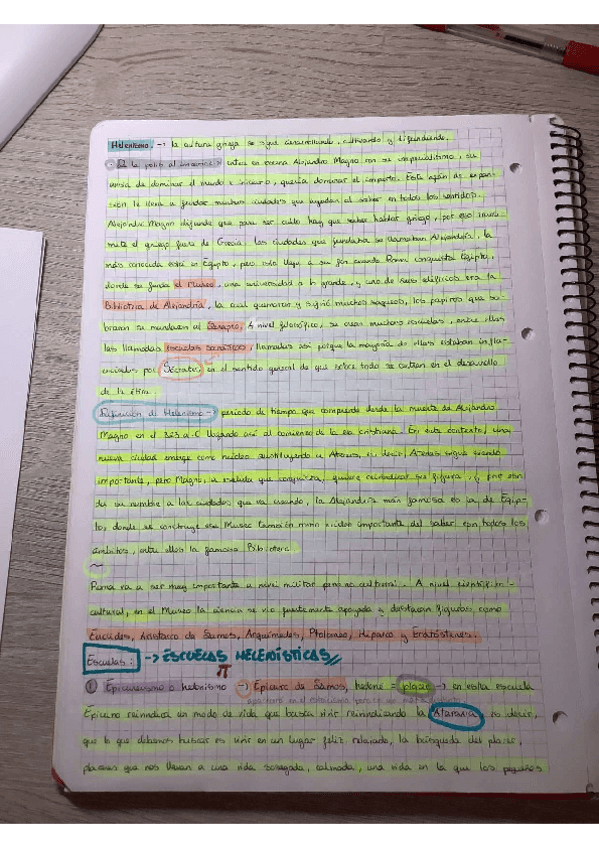 Helenismo. → la cultura griega se sigue desarrollando, cultivando y difundiendo.
entra en escena Alejandro Magno con su imperialismo, su
ansia de dominar el mundo e incluso, quería dominar el imperio. Este afán de expan-
sión le lleva a fundar muchas ciudades que ayudan al saber en todos los sentidos.
Alejandro Magno difunde que para ser culto hay que saber hablar griego, por eso
el griego fuera de Grecia. Las ciudades que fundaba se llamaban Alejandría, la
más conocida está en Egipto, pero esto llega a su fin cuando Roma conquista Egipto,
donde se funda el Museo, una universidad a lo grande, y uno de sus edificios era la
Biblioteca de Alejandría, la cual quemaron y sufrió muchos saqueos, los papiros que so-
braron se mandaron al Serapeo. A nivel filosófico, se crean muchas escuelas, entre ellas
las llamadas escuelas socráticas, llamadas así porque la mayoría de ellas estaban influ-
enciadas por Sócrates, en el sentido general de que sobre todo se centran en el desarrollo
de la ética.
Definición de Helenismo → período de tiempo que comprende desde la muerte de Alejandro
Magno en el 323 a.C llegando así al comienzo de la era cristiana. En este contexto, una
nueva ciudad emerge como núcleo sustituyendo a Atenas, es decir, Atenas sigue siendo
importante, pero Magno, a medida que conquista, quiere reivindicar su figura, y por eso
da su nombre a las ciudades que va creando, la Alejandría más famosa es la de Egip-
to, donde se construye ese Museo también como núcleo importante del saber en todos los
ámbitos, entre ellos la famosa Biblioteca.
~
Roma va a ser muy importante a nivel militar pero no cultural. A nivel científico-
cultural, en el Museo la ciencia se vio fuertemente apoyada y destacan figuras, como
Euclides, Aristarco de Samos, Arquímedes, Ptolomeo, Hiparco y Eratóstenes.
Escuelas: → ESCUELAS HELENÍSTICAS
① Epicureísmo o hedonismo → Epicuro de Samos, hedoné = placer → en esta escuela
Epicuro reivindica un modo de vida que busca vivir reivindicando la Ataraxia es decir,
que lo que debemos buscar es vivir en un lugar feliz, relajado, la búsqueda del placer,
placeres que nos llevan a una vida sosegada, calmada, una vida en la que los pequeños